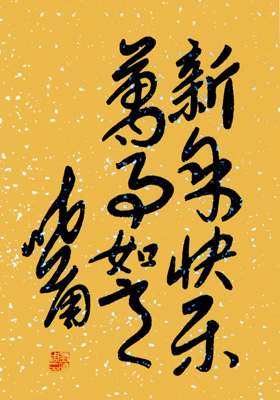 新年快乐
萬事如意